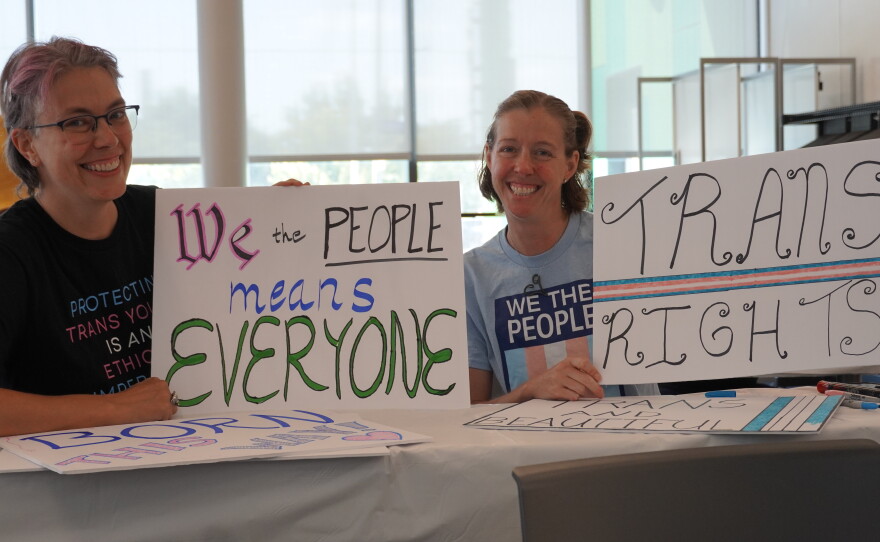 PROTECTIN
TRANS YOU
IS AN
ETHIC
We the PEOPLE
means
EVERYONE
WE THE
PEOPLE
TRANS
RIGHTS
BORN
THIS WAY!
TRANS
AND
BEAUTIFUL